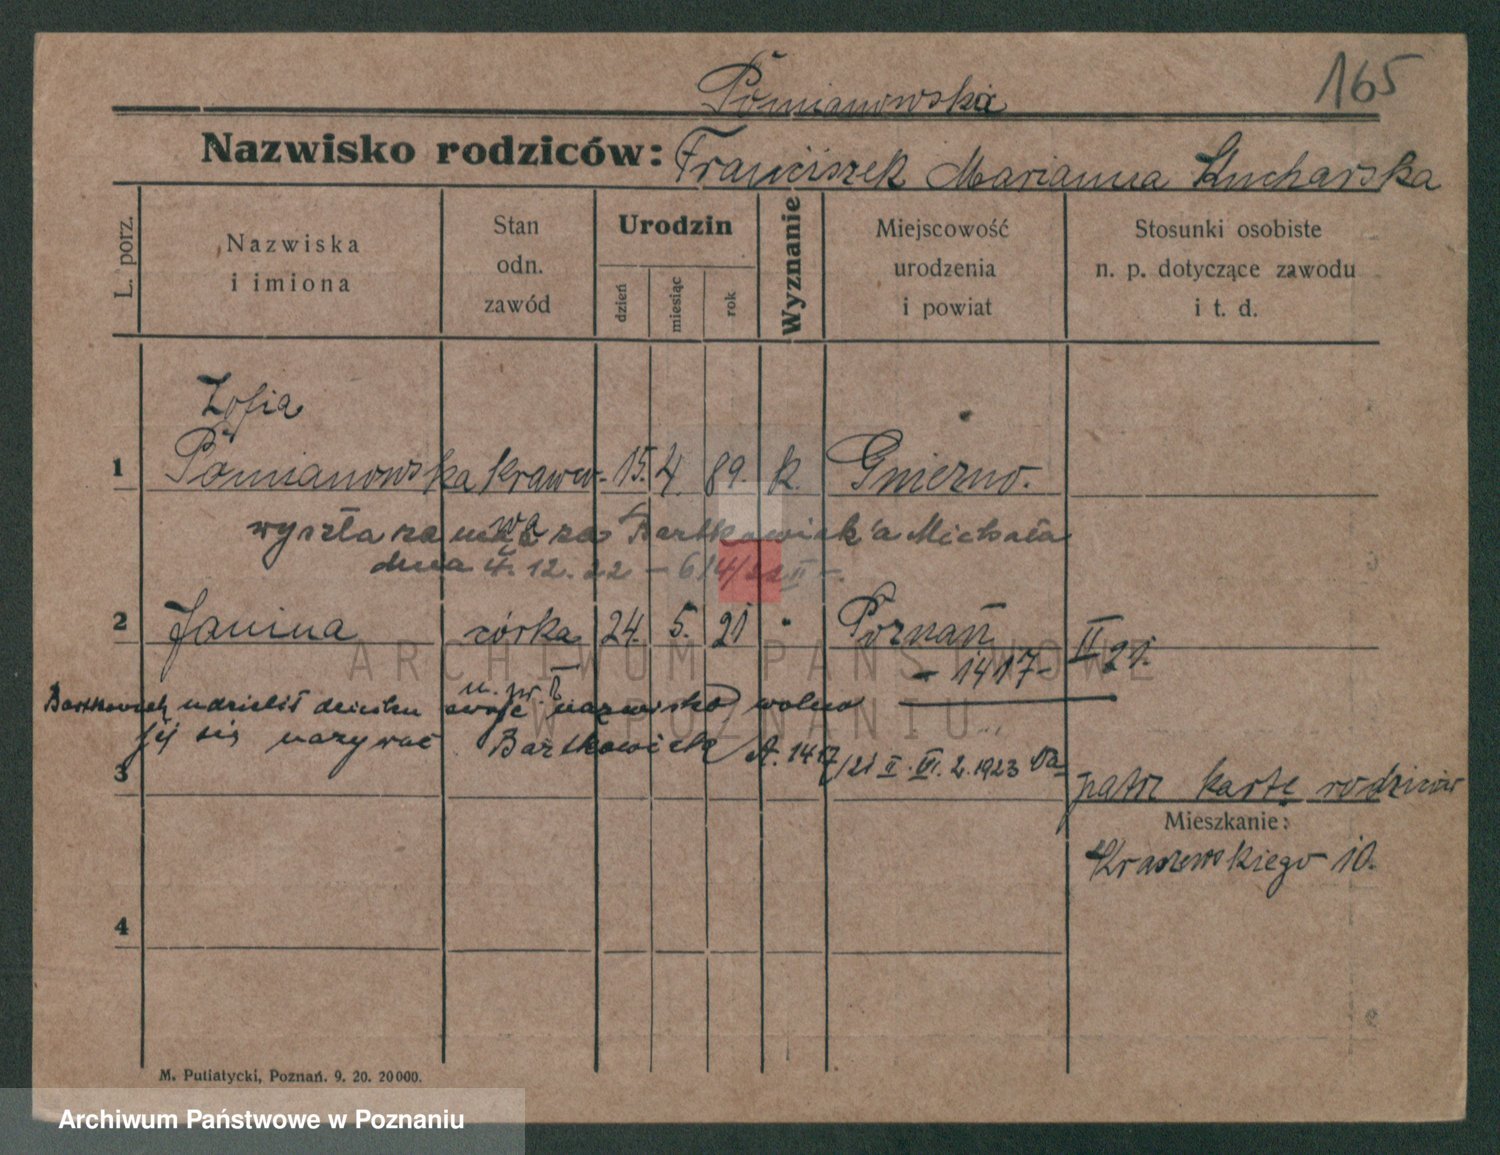 165
Pomianowska
Nazwisko rodziców: Franciszek Marianna Kucharska
L. porz.
Nazwiska
i imiona
Stan
odn.
zawód
Urodzin
dzień
miesiąc
rok
Wyznanie
Miejscowość
urodzenia
i powiat
Stosunki osobiste
n. p. dotyczące zawodu
i t. d.
Zofia
1 Pomianowska krawco- 15. 4. 89. k. Gniezno.
wa
wyszła za mąż za Bartkowiak'a Michała
dnia 4. 12. 22 - 614/22 II -.
2 Janina córka 24. 5. 21 " Poznań
- 1417- II 21.
n. pr.
Bartkowiak udzielił dziecku swoje nazwisko wolno
jej się nazywać Bartkowiak A. 1417/21 II. 2. 1923
3
patrz kartę rodziców
Mieszkanie:
Kraszewskiego 10.
4
M. Putiatycki, Poznań. 9. 20. 20000.
ARCHIWUM PAŃSTWOWE
W POZNANIU
Archiwum Państwowe w Poznaniu